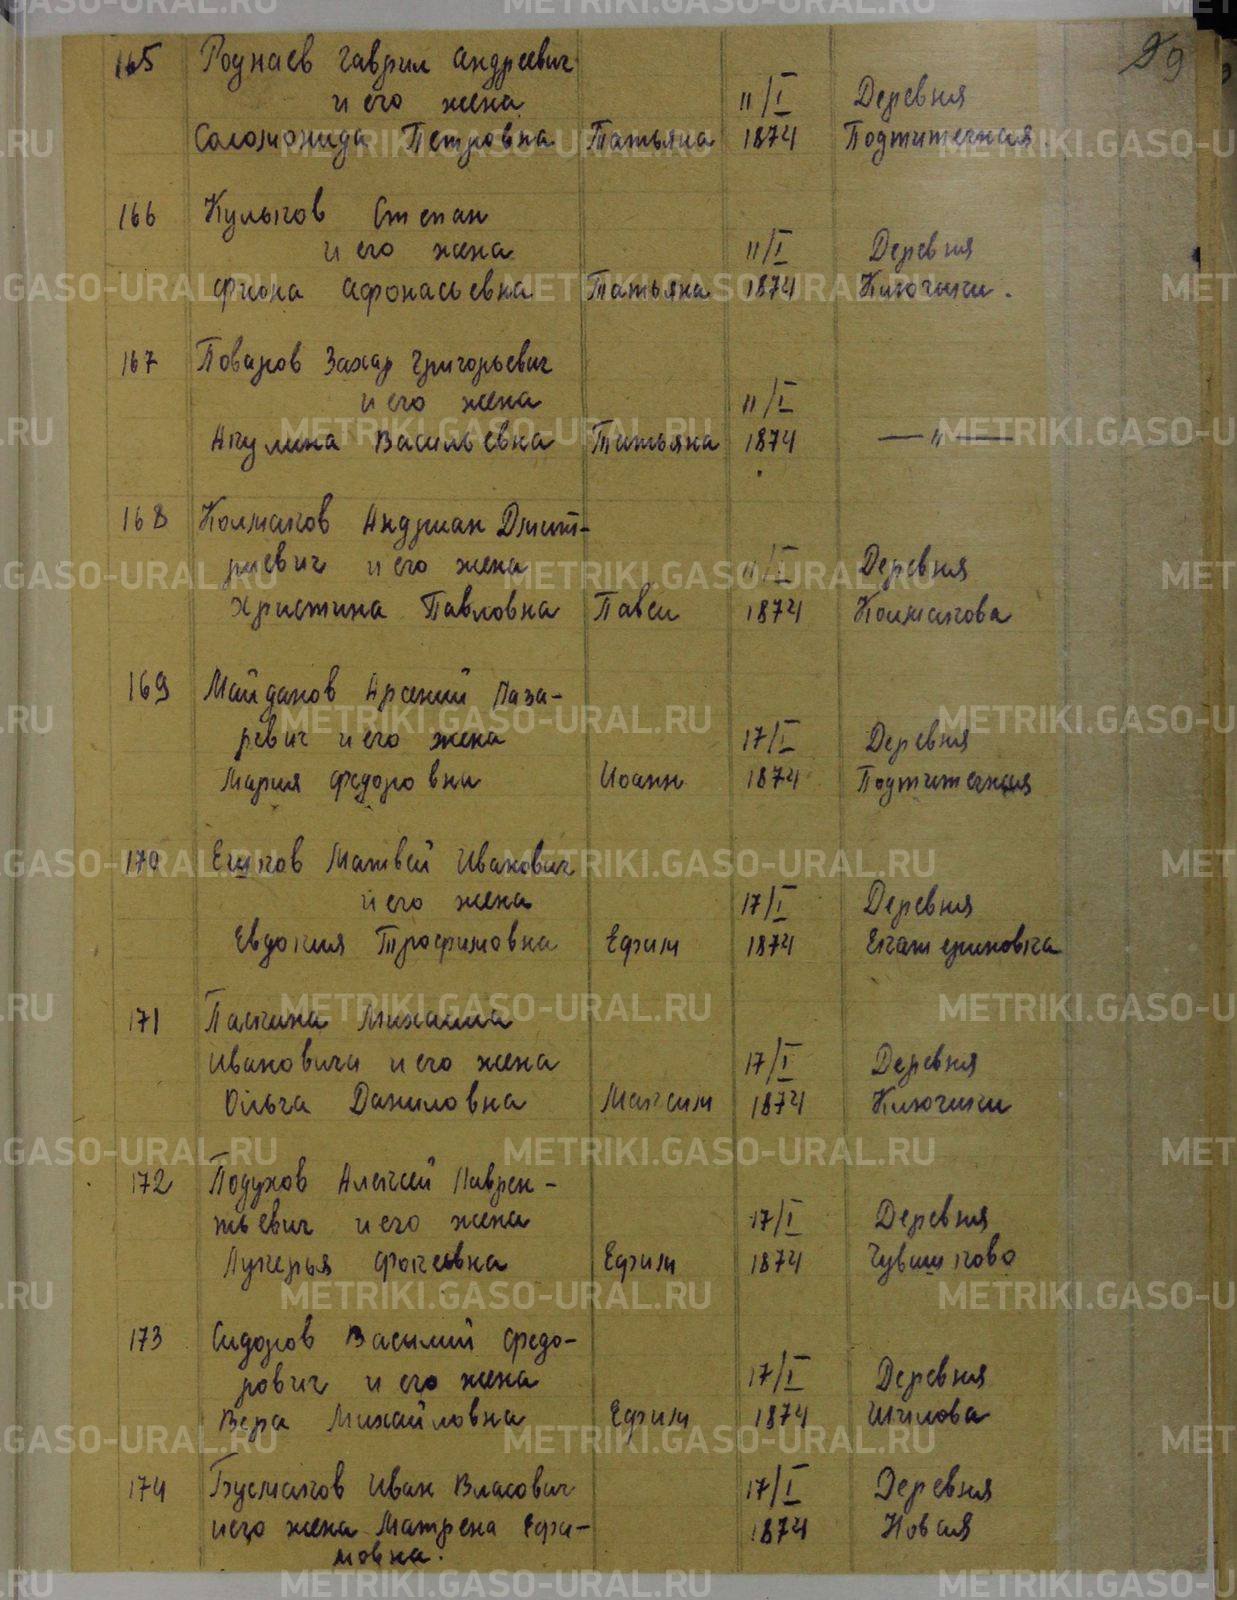 29
165 Роднаев Гаврил Андреевич
и его жена 11/I Деревня
Соломонида Петровна Татьяна 1874 Подтитечная.
166 Кулыков Степан
и его жена 11/I Деревня
Фиона Афонасьевна Татьяна 1874 Ключики.
167 Поваров Захар Григорьевич
и его жена 11/I
Акулина Васильевна Татьяна 1874 — " —
168 Колмаков Андриан Дмит-
риевич и его жена 11/I Деревня
Христина Павловна Павел 1874 Колмакова
169 Майданов Арсений Лаза-
ревич и его жена 17/I Деревня
Мария Федоровна Иоанн 1874 Подтитечная
170 Матвей Иванович
и его жена 17/I Деревня
Евдокия Трофимовна Ефим 1874 Екатериновка
171 Паскина Михаила
Ивановича и его жена 17/I Деревня
Ольга Даниловна Максим 1874 Ключики
172 Подухов Алексей Лаврен-
тьевич и его жена 17/I Деревня
Лукерья Фокеевна Ефим 1874 Чувашково
173 Сидоров Василий Федо-
рович и его жена 17/I Деревня
Вера Михайловна Ефим 1874 Шилова
174 Бусмаков Иван Власович 17/I Деревня
и его жена Матрена Ефи- 1874 Новая
мовна.
METRIKI.GASO-URAL.RU